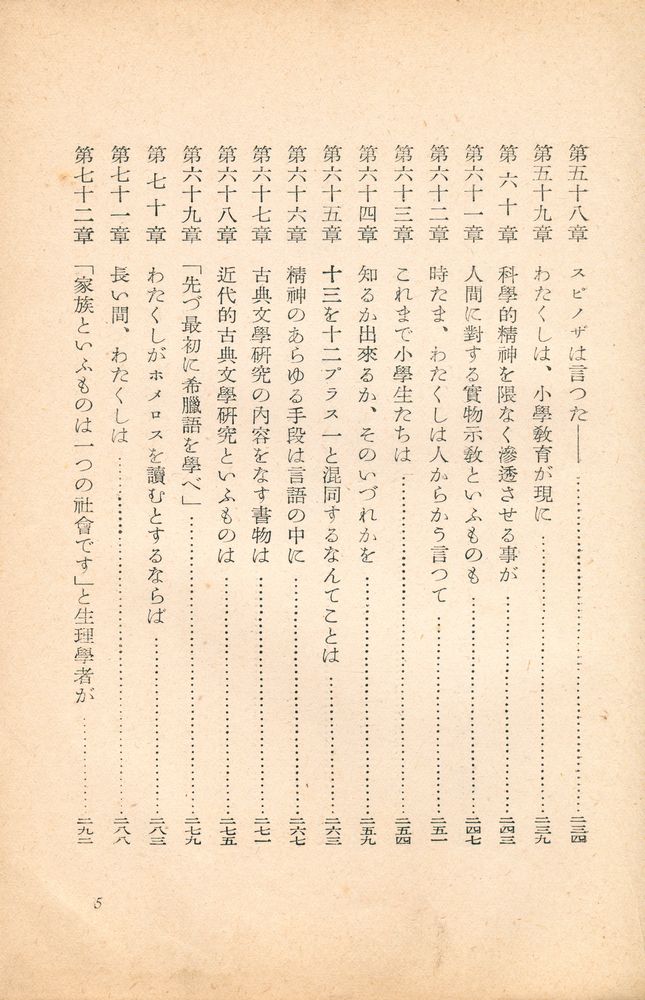 第五十八章 スピノザは言つた――……二三四
第五十九章 わたくしは、小學敎育が現に……二三九
第六十章 科學的精神を隈なく滲透させる事が……二四三
第六十一章 人間に對する實物示敎といふものも……二四七
第六十二章 時たま、わたくしは人からかう言つて……二五一
第六十三章 これまで小學生たちは……二五四
第六十四章 知るか出來るか、そのいづれかを……二五九
第六十五章 十三を十二プラス一と混同するなんてことは……二六三
第六十六章 精神のあらゆる手段は言語の中に……二六七
第六十七章 古典文學硏究の內容をなす書物は……二七一
第六十八章 近代的古典文學硏究といふものは……二七五
第六十九章 「先づ最初に希臘語を學べ」……二七九
第七十章 わたくしがホメロスを讀むとするならば……二八三
第七十一章 長い間、わたくしは……二八八
第七十二章 「家族といふものは一つの社會です」と生理學者が……二九二
5